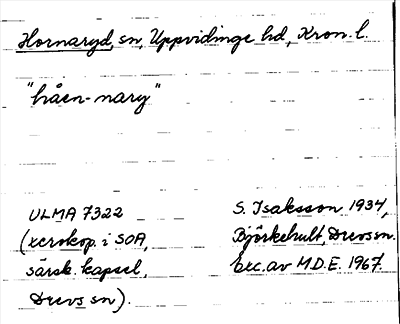 Hornaryd, sn, Uppvidinge hd, Kron. l.
"håen-nary"
ULMA 7322
(xerokop. i SOA,
särsk. kapsel,
Drevs sn).
S. Isaksson 1934,
Björkehult, Drevs sn.
Exc. av M.D.E. 1967.